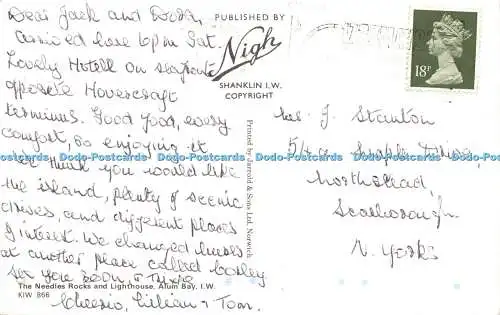 Dear Jack and Dora,
Arrived here 6pm Sat.
Lovely Hotell on seafront
opposite Hovercraft
terminus. Good food, every
comfort, so enjoying it
We think you would like
the island, plenty of scenic
drives, and different places
of interest. We changed buses
at another place called
See you soon,
Cheerio, Lillian & Tom.
The Needles Rocks and Lighthouse, Alum Bay, I.W.
KIW 866
PUBLISHED BY
Nigh
SHANKLIN I.W.
COPYRIGHT
Printed by Jarrold & Sons Ltd, Norwich
18P
J. Stainton
Maple Drive,
Northstead,
Scarborough,
N. Yorks
Dodo-Postcards Dodo-Postcards Dodo-Postcards Dodo-Postcards Dodo-Postcards Dodo-Postcards